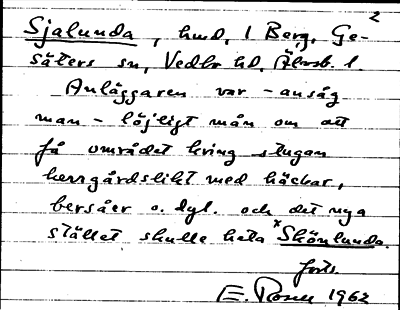 2
Sjalunda, hmd, 1 Berg, Ge-
säters sn, Vedbo hd, Älvsb. l.
Anläggaren var - ansåg
man - löjligt mån om att
få området kring stugan
herrgårdslikt med häckar,
bersåer o. dyl. och det nya
stället skulle heta x Skönlunda.
forts.
E. Rosen 1962